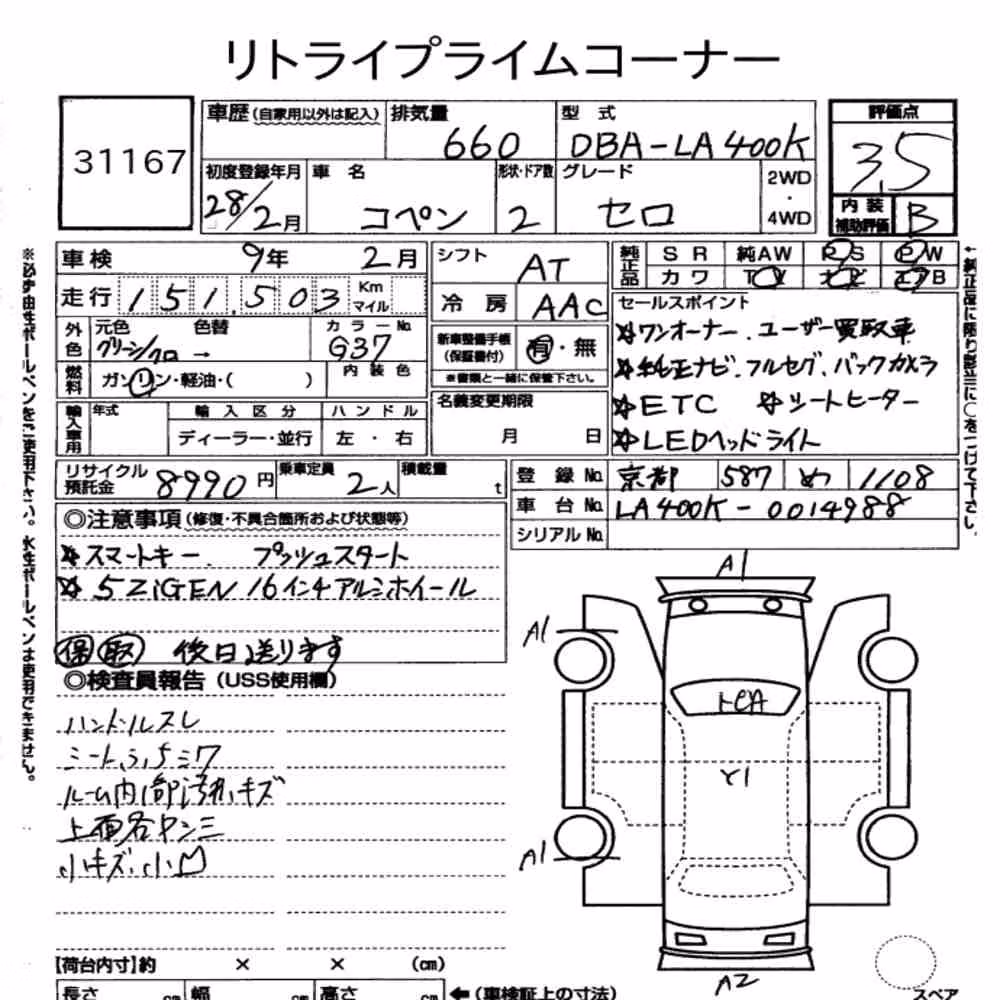 リトライプライムコーナー
31167
車歴(自家用以外は記入) 排気量 660 型式 DBA-LA400K 評価点 3.5
初度登録年月 28/2月 車名 コペン 形状・ドア数 2 グレード セロ 2WD・4WD 内装補助評価 B
車検 9年 2月 シフト AT 純正品 SR 純AW PS PW
走行 151,503 Km マイル 冷房 AAC カワ TV ナビ エアB
外色 元色 グリーン/クロ → 色替 カラーNo. G37
新車整備手帳(保証書付) 有・無
※書類と一緒に保管下さい。
燃料 ガソリン・軽油・( ) 内装色
輸入車用 年式 輸入区分 ディーラー・並行 ハンドル 左・右
名義変更期限 月 日
セールスポイント
☆ワンオーナー、ユーザー買取車
☆純正ナビ、フルセグ、バックカメラ
☆ETC ☆シートヒーター
☆LEDヘッドライト
リサイクル預託金 8990円 乗車定員 2人 積載量 t
登録No. 京都 587 め 1108
車台No. LA400K-0014988
シリアルNo.
◎注意事項(修復・不具合箇所および状態等)
☆スマートキー、プッシュスタート
☆5ZiGEN 16インチアルミホイール
保 取 後日送ります
◎検査員報告(USS使用欄)
ハンドルスレ
シートスレ シワ
ルーム内部汚れ、キズ
小キズ、小凹
A1
A1
トビA
Y1
A1
A2
【荷台内寸】約 × × (cm)
長さ cm 幅 cm 高さ cm ←(車検証上の寸法)
スペア
※必ず油性ボールペンをご使用下さい。水性ボールペンは使用できません。